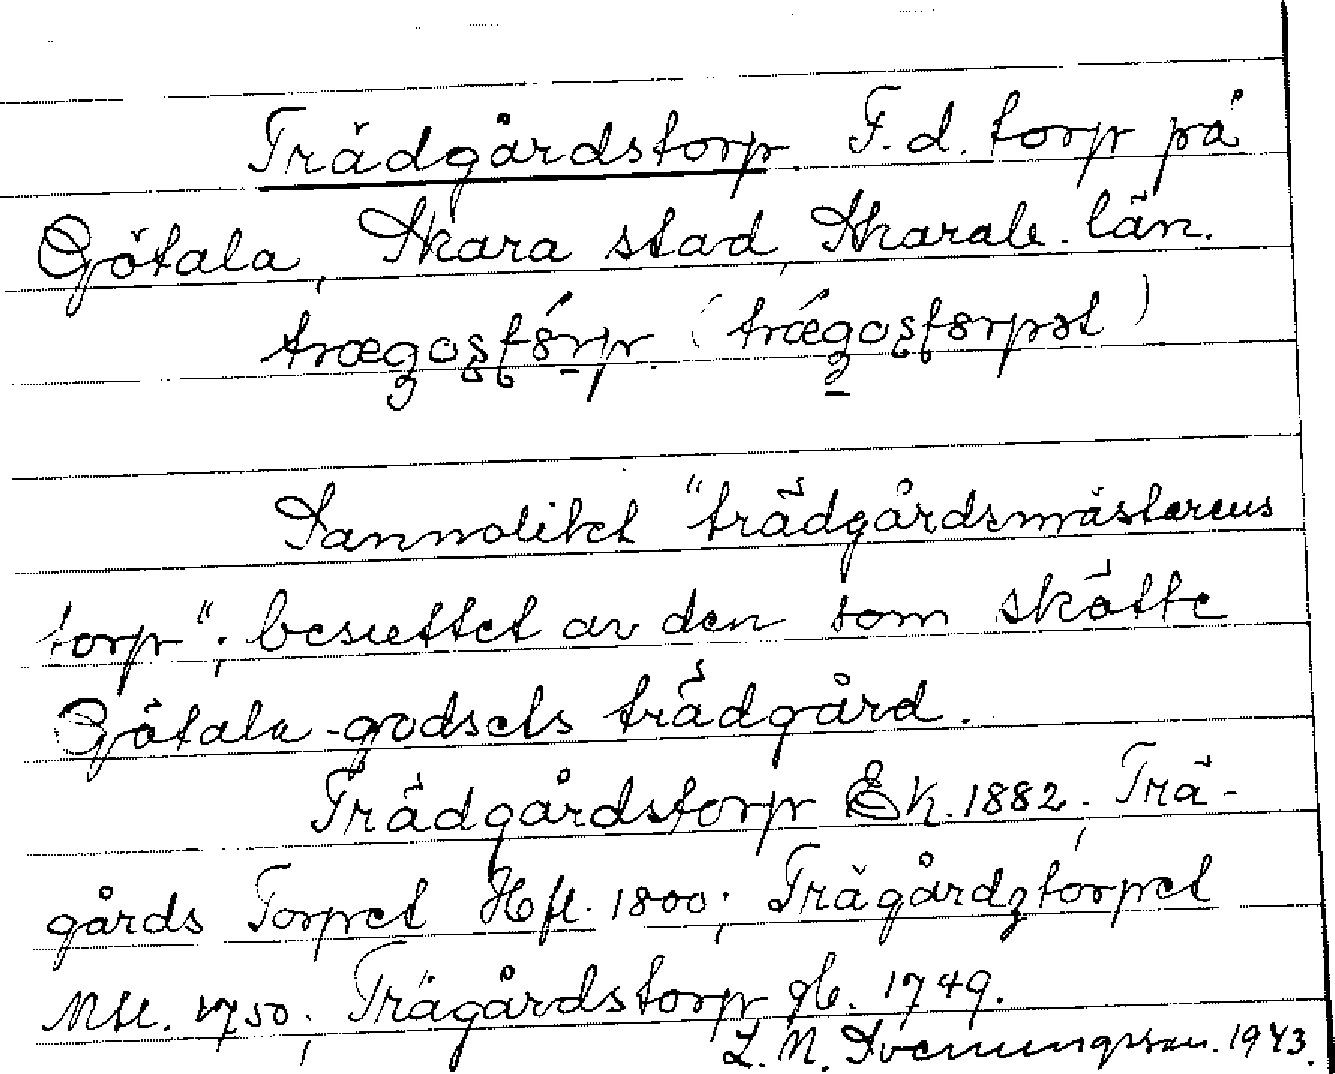 Trädgårdstorp F.d. torp på
Götala, Skara stad, Skarab. län.
trægosstórp. (trǽgosstorpət)
Sannolikt "trädgårdsmästarens
torp"; besuttet av den som skötte
Götala-godsets trädgård.
Trädgårdstorp Ek. 1882; Trä-
gårds Torpet Hfl. 1800; Trägårdztorpet
Mtl. 1750; Trägårdstorp gb. 1749.
L. M. Svenungsson. 1943.